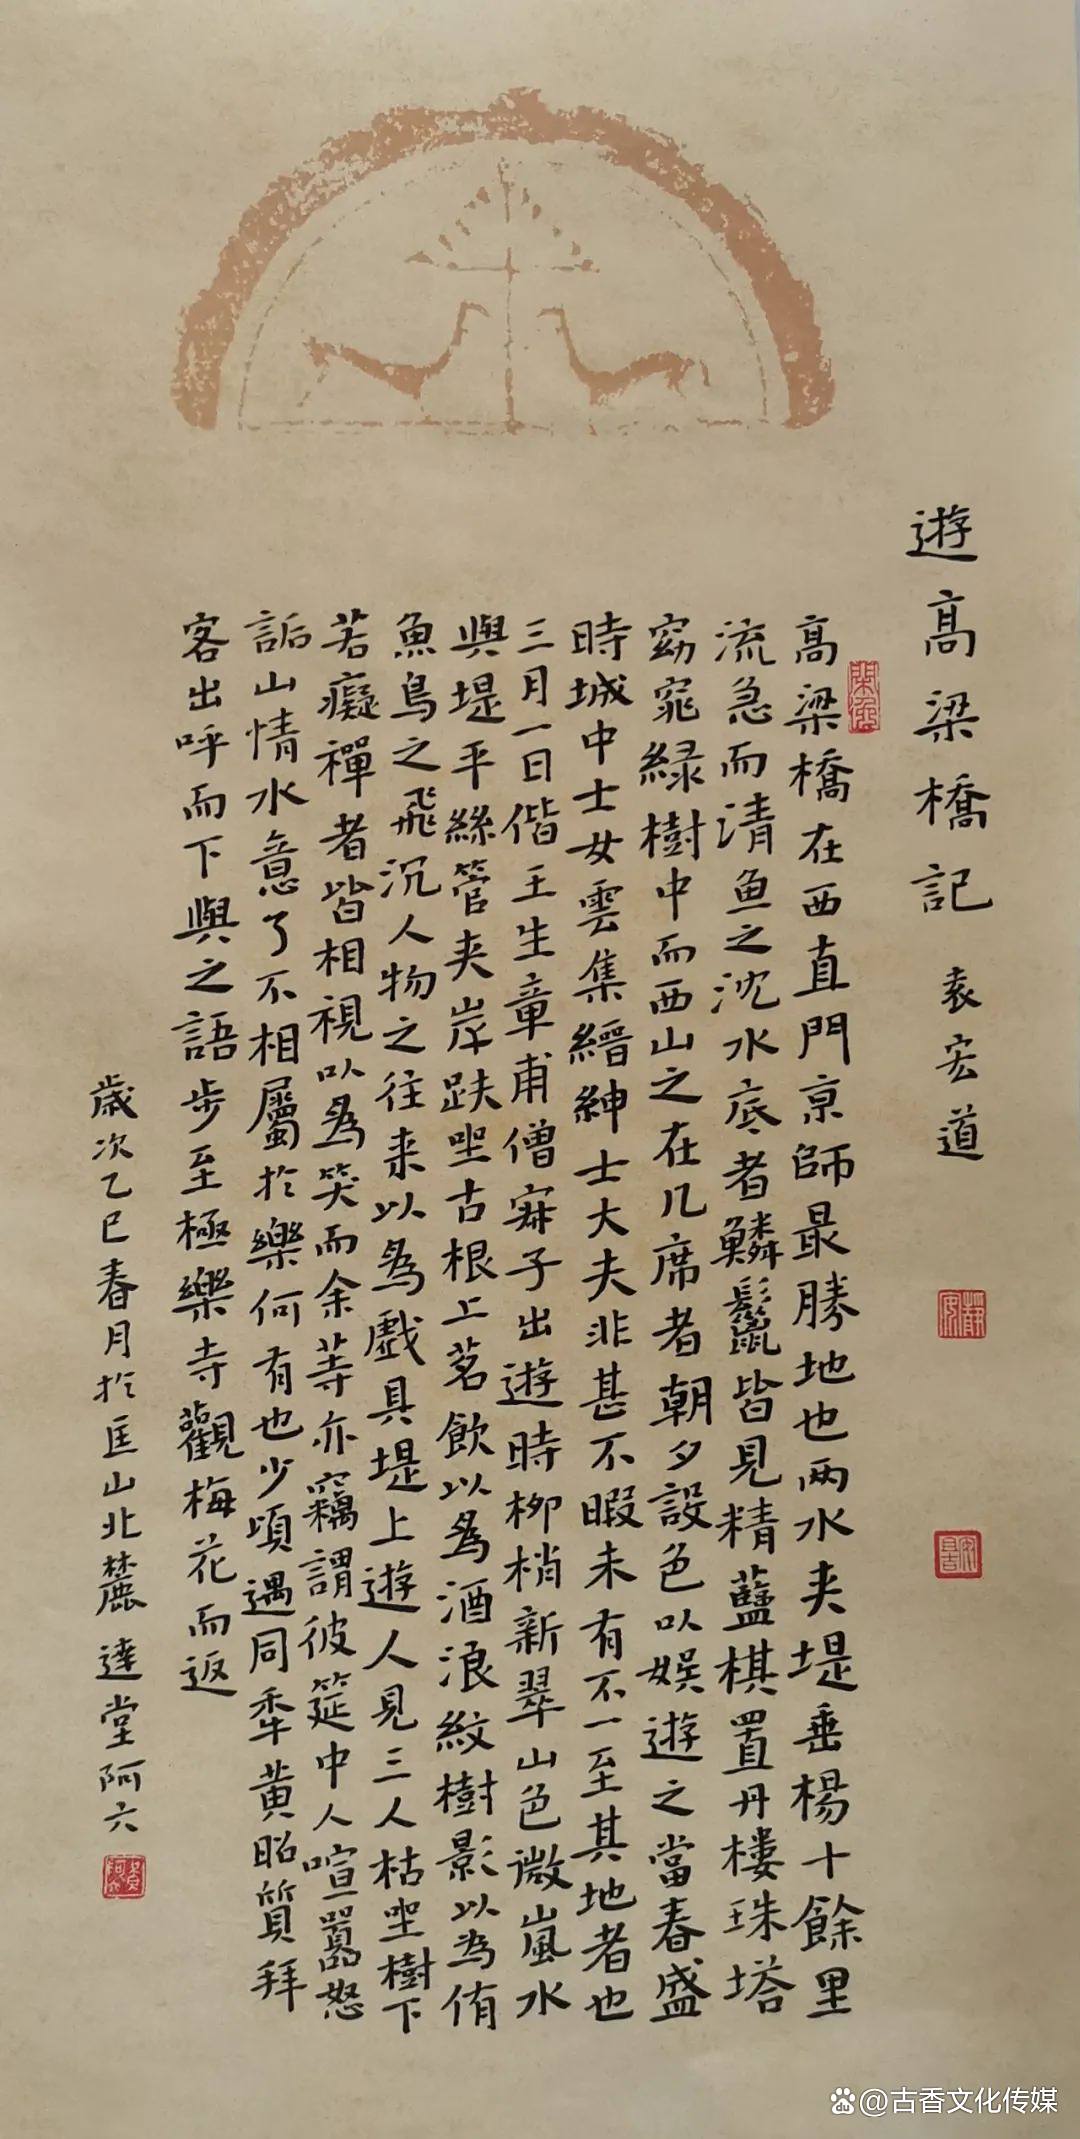 遊高梁橋記 袁宏道
高梁橋在西直門京師最勝地也两水夹堤垂楊十餘里
流急而清鱼之沈水底者鱗鬣皆見精藍棋置丹樓珠塔
窈窕緑樹中而西山之在几席者朝夕設色以娱遊之當春盛
時城中士女雲集縉紳士大夫非甚不暇未有不一至其地者也
三月一日偕王生章甫僧寂子出遊時柳梢新翠山色微嵐水
與堤平絲管夹岸趺坐古根上茗飲以為酒浪紋樹影以為侑
魚鳥之飛沉人物之往来以為戲具堤上遊人見三人枯坐樹下
若癡禪者皆相視以為笑而余等亦竊謂彼筵中人喧囂怒
詬山情水意了不相屬於樂何有也少頃遇同年黄昭質拜
客出呼而下與之語步至極樂寺觀梅花而返
歲次乙巳春月於匡山北麓達堂阿六
@古香文化传媒